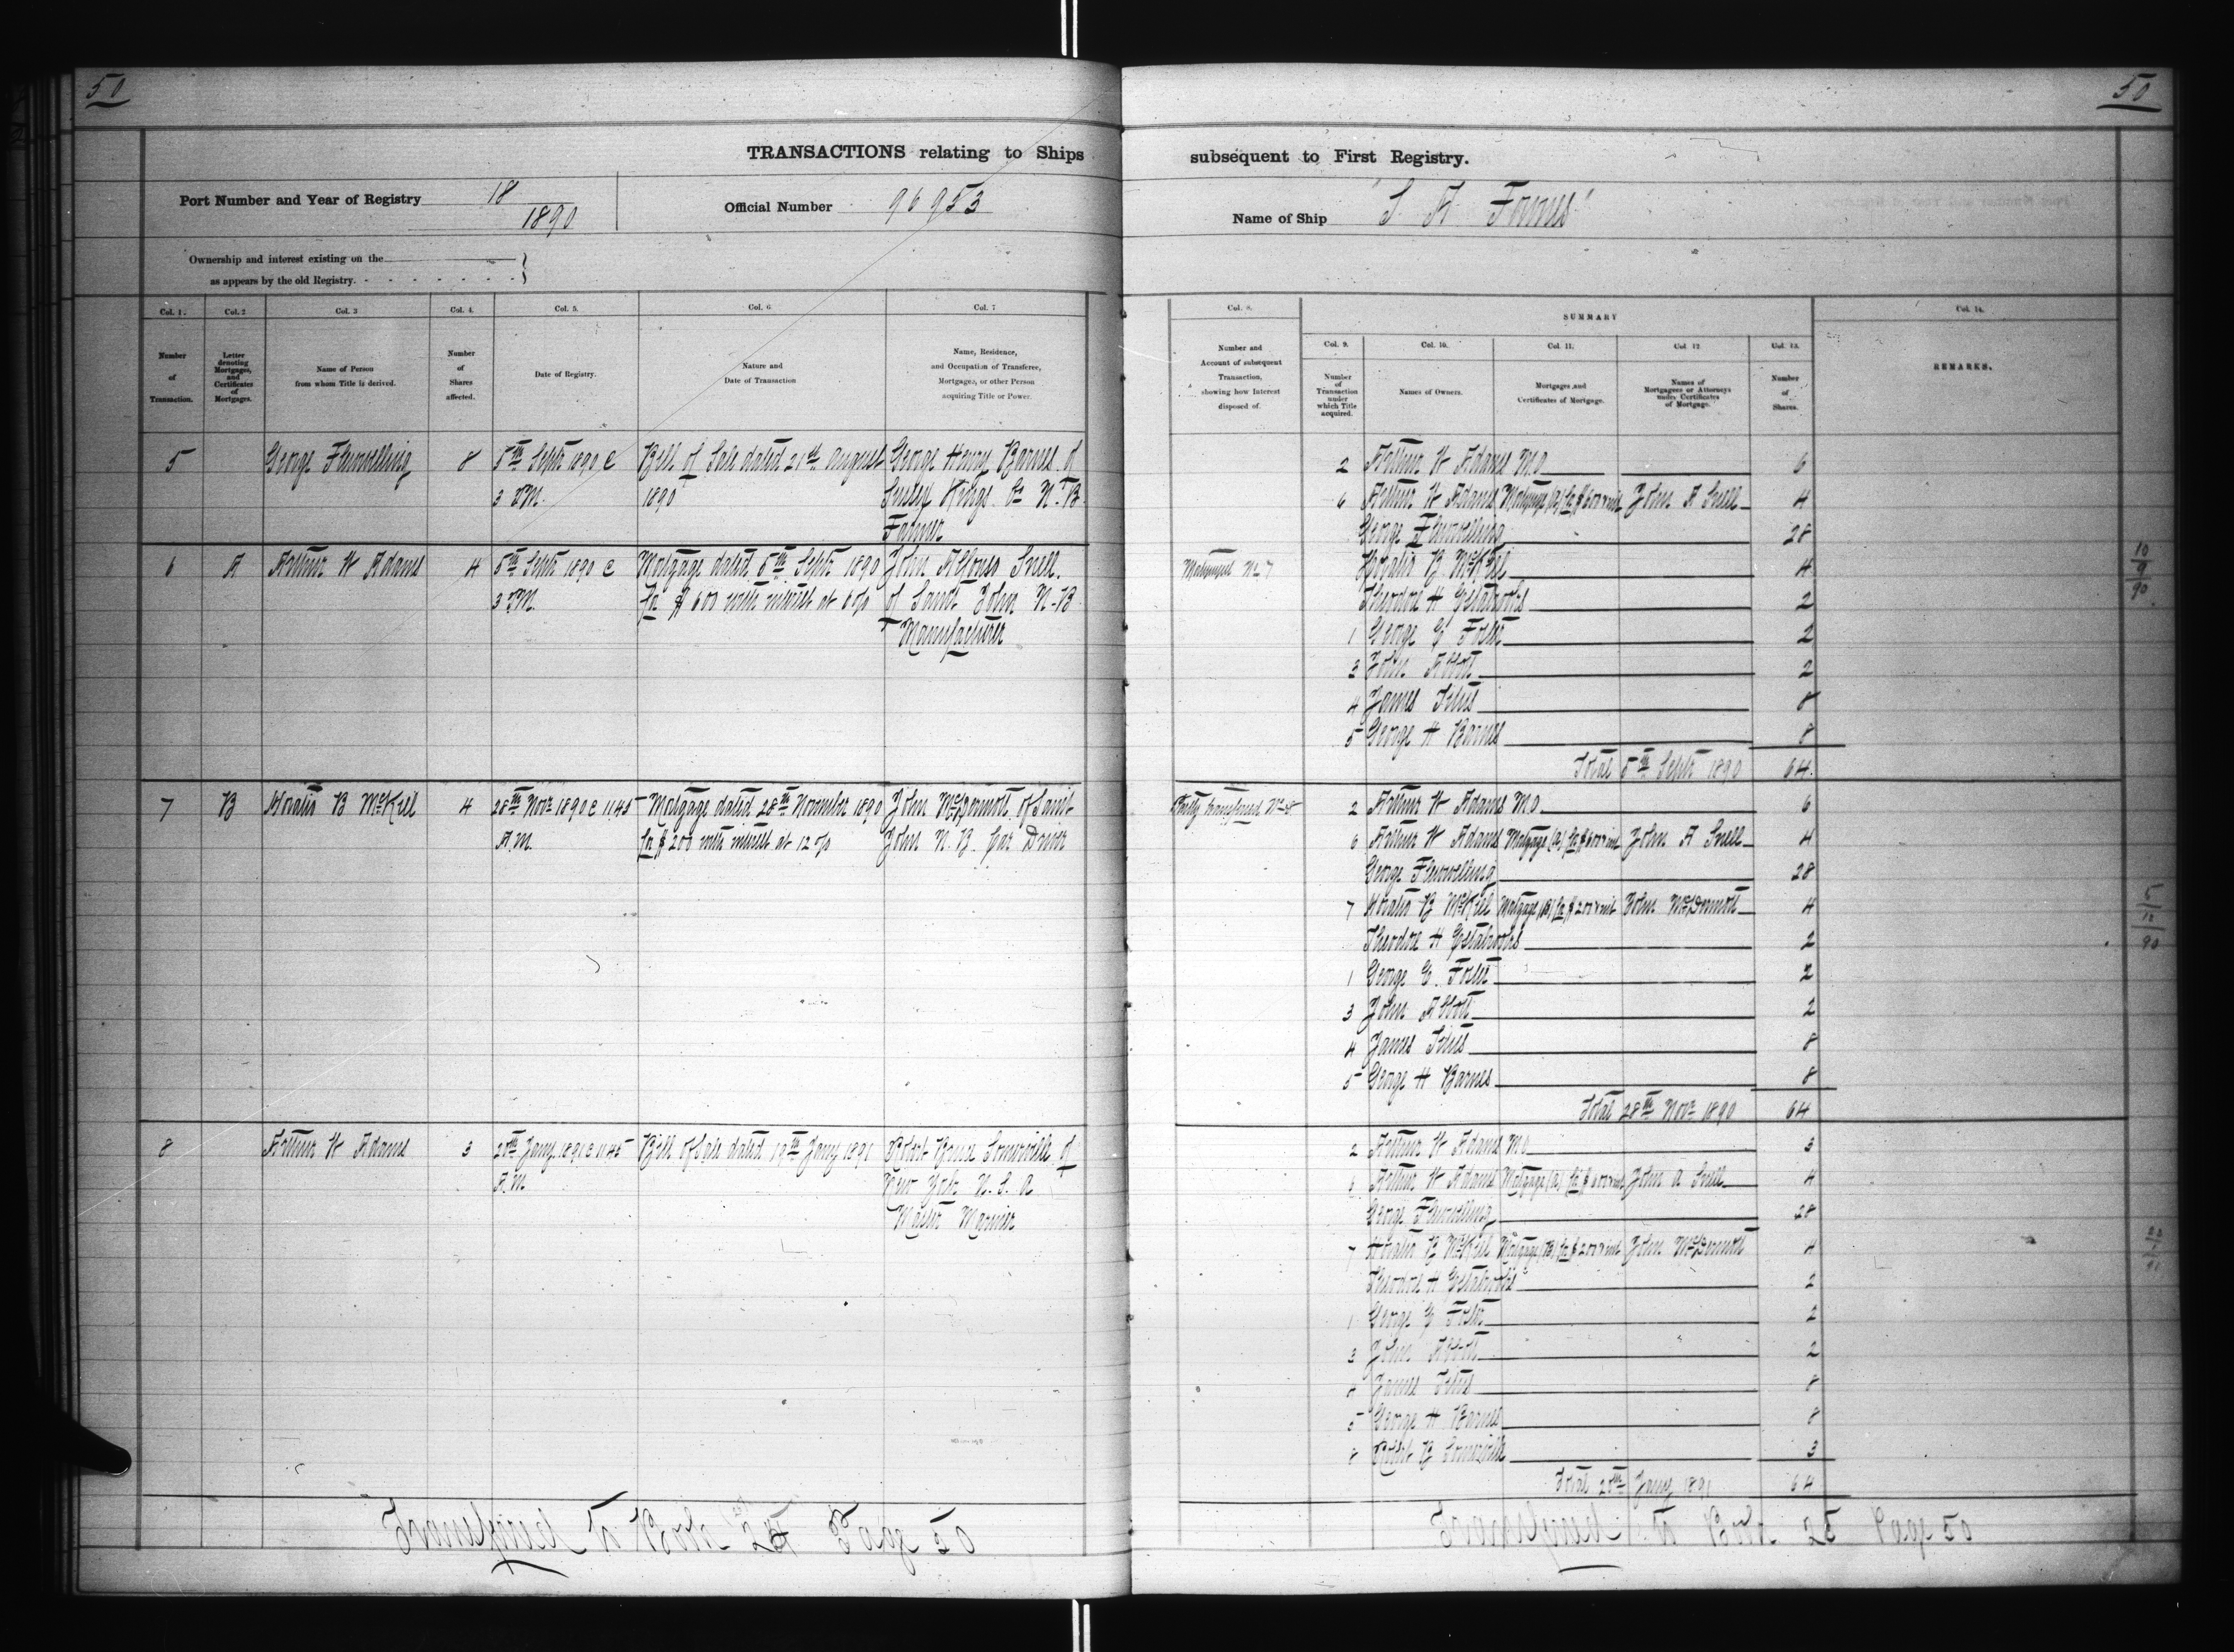 50
50
TRANSACTIONS relating to Ships subsequent to First Registry.
Port Number and Year of Registry 18/1890
Official Number 96953
Name of Ship "S A Fownes"
Ownership and interest existing on the
as appears by the old Registry.
Col. 1.
Number of Transaction.
Col. 2
Letter denoting Mortgages, and Certificates of Mortgages.
Col. 3
Name of Person from whom Title is derived.
Col. 4.
Number of Shares affected.
Col. 5.
Date of Registry.
Col. 6
Nature and Date of Transaction
Col. 7
Name, Residence, and Occupation of Transferee, Mortgagee, or other Person acquiring Title or Power.
5 George Flewwelling 8 5th Septr 1890 @ Bill of Sale dated 21st August George Henry Barnes of
3 P.M. 1890 Sussex Kings Co N.B.
Farmer
6 A Arthur W Adams 4 5th Septr 1890 @ Mortgage dated 5th Septr 1890 John Alfonso Snell
3 P.M. for $600 with interest at 6 % of Saint John N-B
Manufacturer
7 B Horatio B McKiel 4 28th Novr 1890 @ 11.45 Mortgage dated 28th November 1890 John McDermott of Saint
A.M. for $200 with interest at 12 % John N.B. Car Driver
8 Arthur W Adams 3 20th Jany 1891 @ 11.45 Bill of Sale dated 19th Jany 1891 Robert Bruce Somerville of
A.M. New York U.S.A
Master Mariner
Transferred to Book 24 Page 50
Col. 8.
Number and Account of subsequent Transaction, showing how Interest disposed of.
SUMMARY
Col. 9.
Number of Transaction under which Title acquired.
Col. 10.
Names of Owners.
Col. 11.
Mortgages and Certificates of Mortgage.
Col. 12
Names of Mortgagees or Attorneys under Certificates of Mortgage.
Col. 13.
Number of Shares.
Col. 14.
REMARKS.
2 Arthur W Adams M.O 6
6 Arthur W Adams Mortgage (A) for $600 & int John A Snell 4
George Flewwelling 28
Mortgaged No 7 Horatio B McKiel 4
Theodore H Estabrooks 2
1 George G Foster 2
3 John Abbott 2
4 James Titus 8
5 George H Barnes 8
Total 5th Septr 1890 64
10/9/90
Partly transferred No 8 2 Arthur W Adams M.O 6
6 Arthur W Adams Mortgage (A) for $600 & int John A Snell 4
George Flewwelling 28
7 Horatio B McKiel Mortgage (B) for $200 & int John McDermott 4
Theodore H Estabrooks 2
1 George G. Foster 2
3 John Abbott 2
4 James Titus 8
5 George H Barnes 8
Total 28th Novr 1890 64
5/12/90
2 Arthur W Adams M.O 3
6 Arthur W Adams Mortgage (A) for $600 & int John A Snell 4
George Flewwelling 28
7 Horatio B McKiel Mortgage (B) for $200 & int John McDermott 4
Theodore H Estabrooks 2
1 George G Foster 2
3 John Abbott 2
4 James Titus 8
5 George H Barnes 8
8 Robert B Somerville 3
Total 20th Jany 1891 64
Transferred to Book 25 Page 50